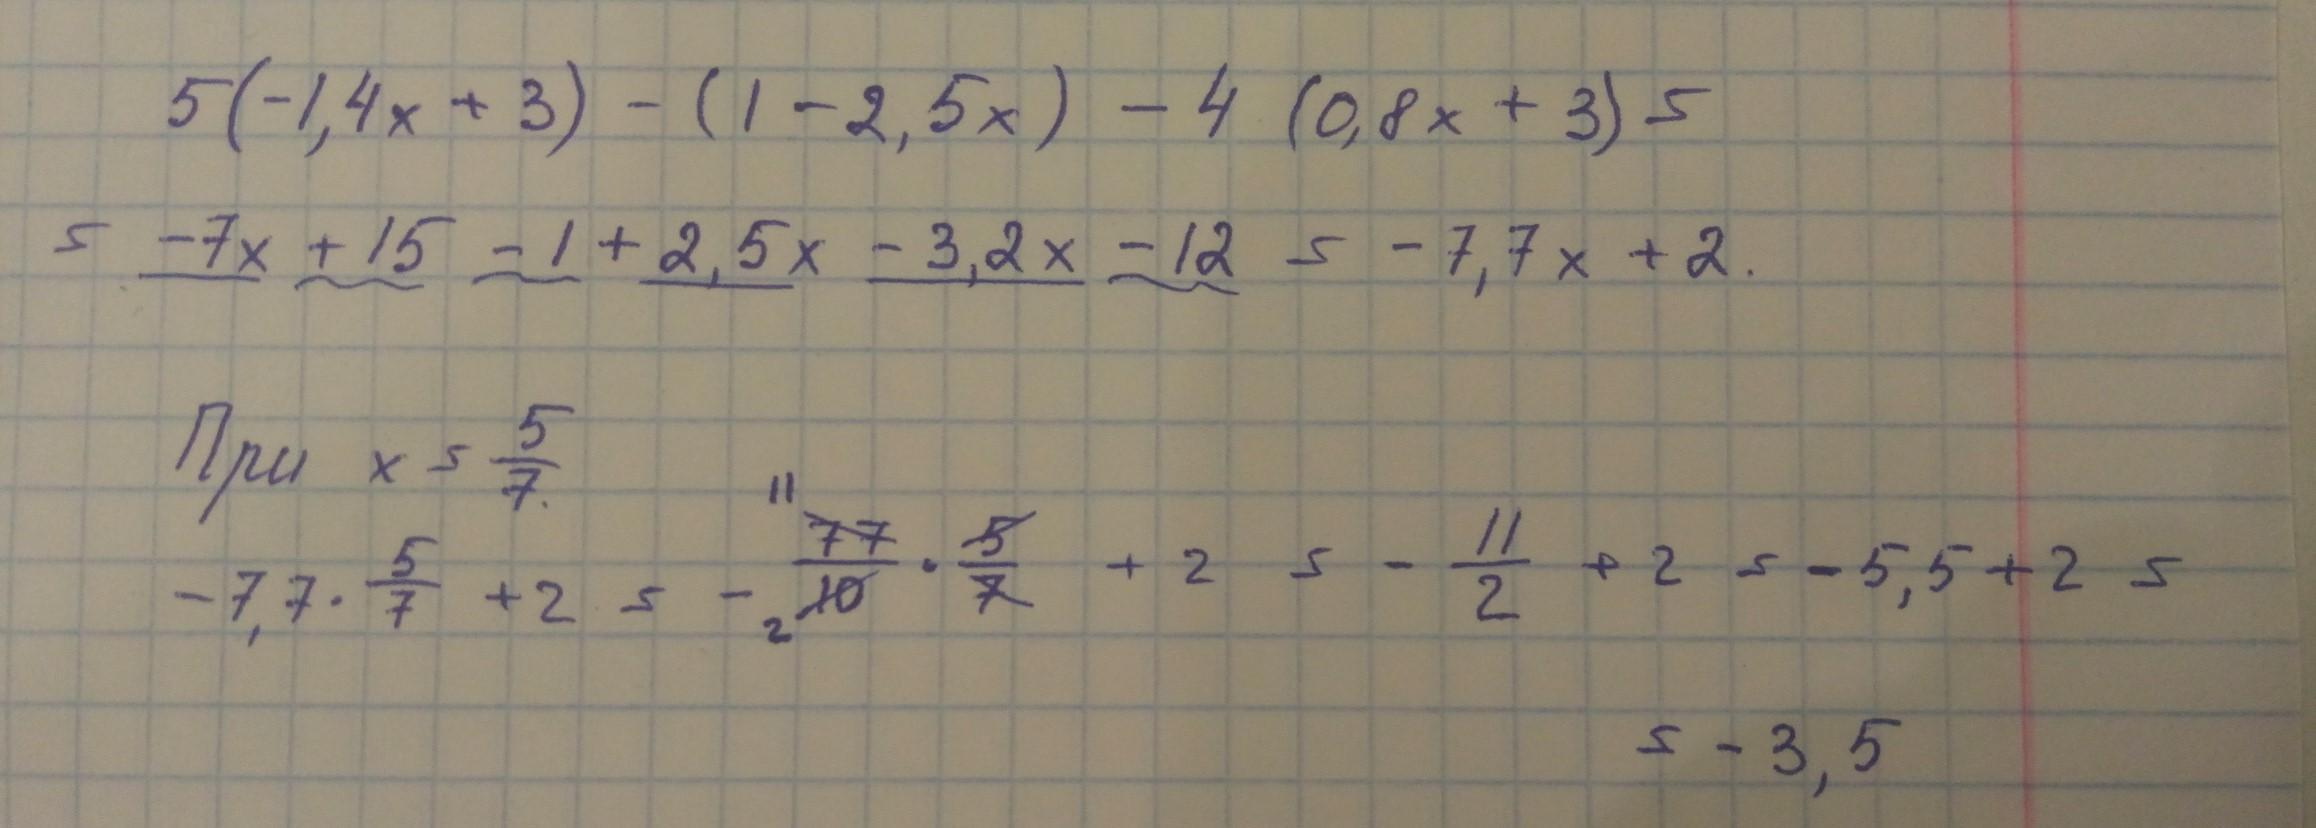 5(-1,4x + 3) - (1 - 2,5x) - 4 (0,8x + 3) =
= -7x + 15 - 1 + 2,5x - 3,2x - 12 = -7,7x + 2.
При x = 5/7.
-7,7 · 5/7 + 2 = - 77/10 · 5/7 + 2 = - 11/2 + 2 = -5,5 + 2 =
= -3,5